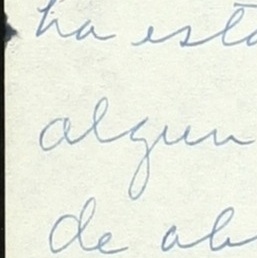 ha est
algun
de ab